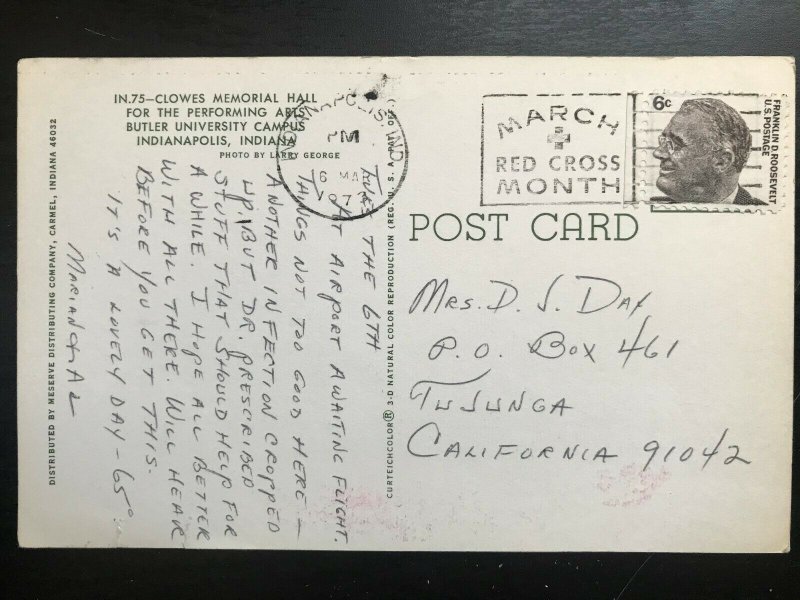 IN.75—CLOWES MEMORIAL HALL
FOR THE PERFORMING ARTS
BUTLER UNIVERSITY CAMPUS
INDIANAPOLIS, INDIANA
PHOTO BY LARRY GEORGE
TUES THE 6TH
AT AIRPORT AWAITING FLIGHT.
THINGS NOT TOO GOOD HERE —
ANOTHER INFECTION CROPPED
UP, BUT DR. PRESCRIBED
STUFF THAT SHOULD HELP FOR
A WHILE. I HOPE ALL BETTER
WITH ALL THERE. WILL HEAR
BEFORE YOU GET THIS.
IT'S A LOVELY DAY - 65°
MARIAN &
DISTRIBUTED BY MESERVE DISTRIBUTING COMPANY, CARMEL, INDIANA 46032
CURTEICHCOLOR® 3-D NATURAL COLOR REPRODUCTION (REG. U. S. A. PAT. OFF.)
IND.
PM
6 MAR
MARCH
RED CROSS
MONTH
6c
FRANKLIN D. ROOSEVELT
U.S. POSTAGE
POST CARD
MRS. D. J. DAY
P.O. BOX 461
TUJUNGA
CALIFORNIA 91042